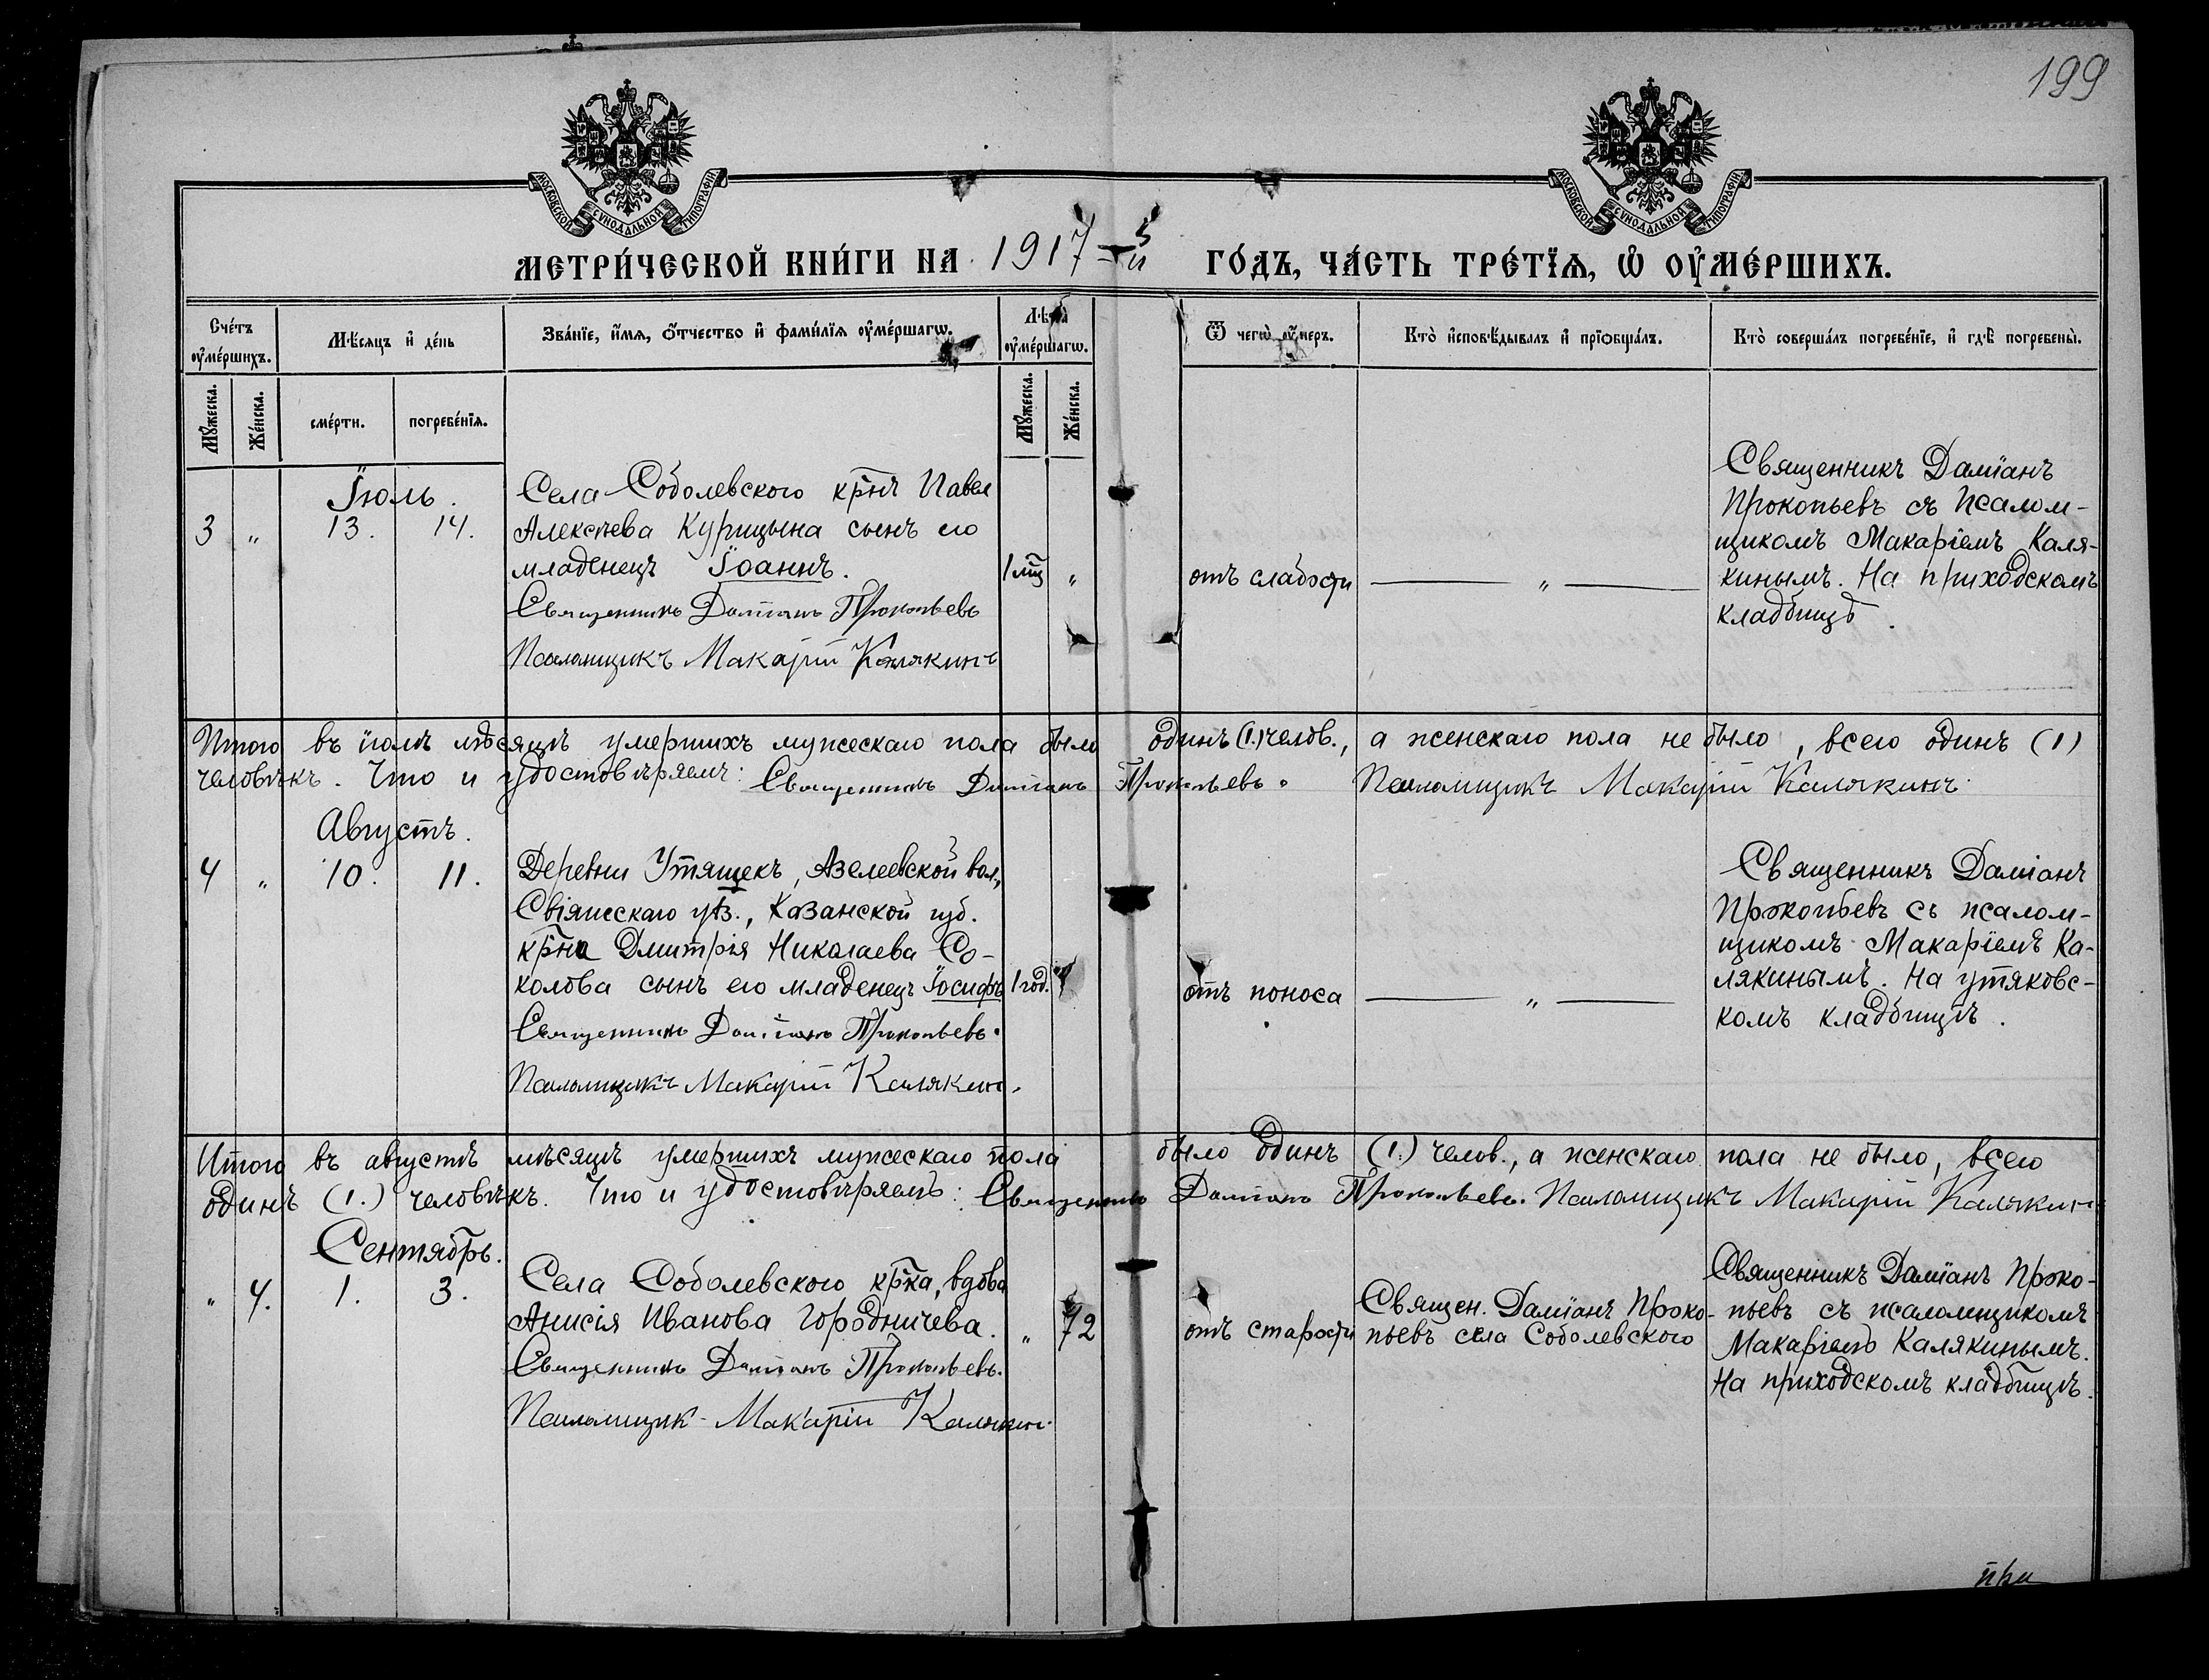 199
МОСКОВСКОЙ СѴНОДАЛЬНОЙ ТИПОГРАФІИ
МОСКОВСКОЙ СѴНОДАЛЬНОЙ ТИПОГРАФІИ
МЕТРИ́ЧЕСКОЙ КНИ́ГИ НА 1917-й ГО́ДЪ, ЧА́СТЬ ТРЕ́ТЇѦ, Ѡ҆ ОУ҆МЕ́РШИХЪ.
Сче́тъ оу҆ме́ршихъ.
Мѣ́сѧцъ и҆ де́нь
Зва́нїе, и҆́мѧ, ѻ҆́тчество и҆ фами́лїѧ оу҆ме́ршагѡ.
Лѣ́та оу҆ме́ршагѡ.
Ѿ чегѡ̀ оу҆́меръ.
Кто̀ и҆сповѣ́дывалъ и҆ прїѡбща́лъ.
Кто̀ соверша́лъ погребе́нїе, и҆ гдѣ̀ погребены̀.
Мꙋ́жеска.
Же́нска.
сме́рти.
погребе́нїѧ.
Мꙋ́жеска.
Же́нска.
Їюль.
3 „ 13. 14.
Села Соболевского крнъ Павел
Алексѣева Курицына сынъ его
младенецъ Їоаннъ.
Священникъ Даміанъ Прокопьевъ
Псаломщикъ Макарій Калякинъ
1 мц „
отъ слабости
„
Священникъ Даміанъ
Прокопьевъ съ Псалом-
щикомъ Макаріемъ Каля-
кинымъ. На приходскомъ
кладбищѣ.
Итого въ іюлѣ мѣсяцѣ умершихъ мужескаго пола было одинъ (1.) челов., а женскаго пола не было, всего одинъ (1)
человѣкъ. Что и удостовѣряемъ: Священникъ Даміанъ Прокопьевъ. Псаломщикъ Макарій Калякинъ.
Августъ.
4 „ 10. 11.
Деревни Утящекъ, Азелеевской вол.,
Свіяжскаго уѣз., Казанской губ.
крна Дмитрія Николаева Со-
колова сынъ его младенецъ Їосифъ
Священникъ Даміанъ Прокопьевъ.
Псаломщикъ Макарій Калякин.
1 год. „
отъ поноса
„
Священникъ Даміанъ
Прокопьевъ съ псалом-
щикомъ Макаріемъ Ка-
лякинымъ. На утяковс-
комъ кладбищѣ.
Итого въ августѣ мѣсяцѣ умершихъ мужескаго пола было одинъ (1.) челов., а женскаго пола не было, всего
одинъ (1.) человѣкъ. Что и удостовѣряемъ: Священникъ Даміанъ Прокопьевъ. Псаломщикъ Макарій Калякин
Сентябрь.
„ 4. 1. 3.
Села Соболевского крка, вдова
Анисія Иванова Городничева.
Священникъ Даміанъ Прокопьевъ.
Псаломщик Макарій Калякин.
„ 72
отъ старости
Священ. Даміанъ Проко-
пьевъ села Соболевского
Священникъ Даміанъ Проко-
пьевъ съ псаломщикомъ
Макаріемъ Калякинымъ.
На приходскомъ кладбищѣ.
при